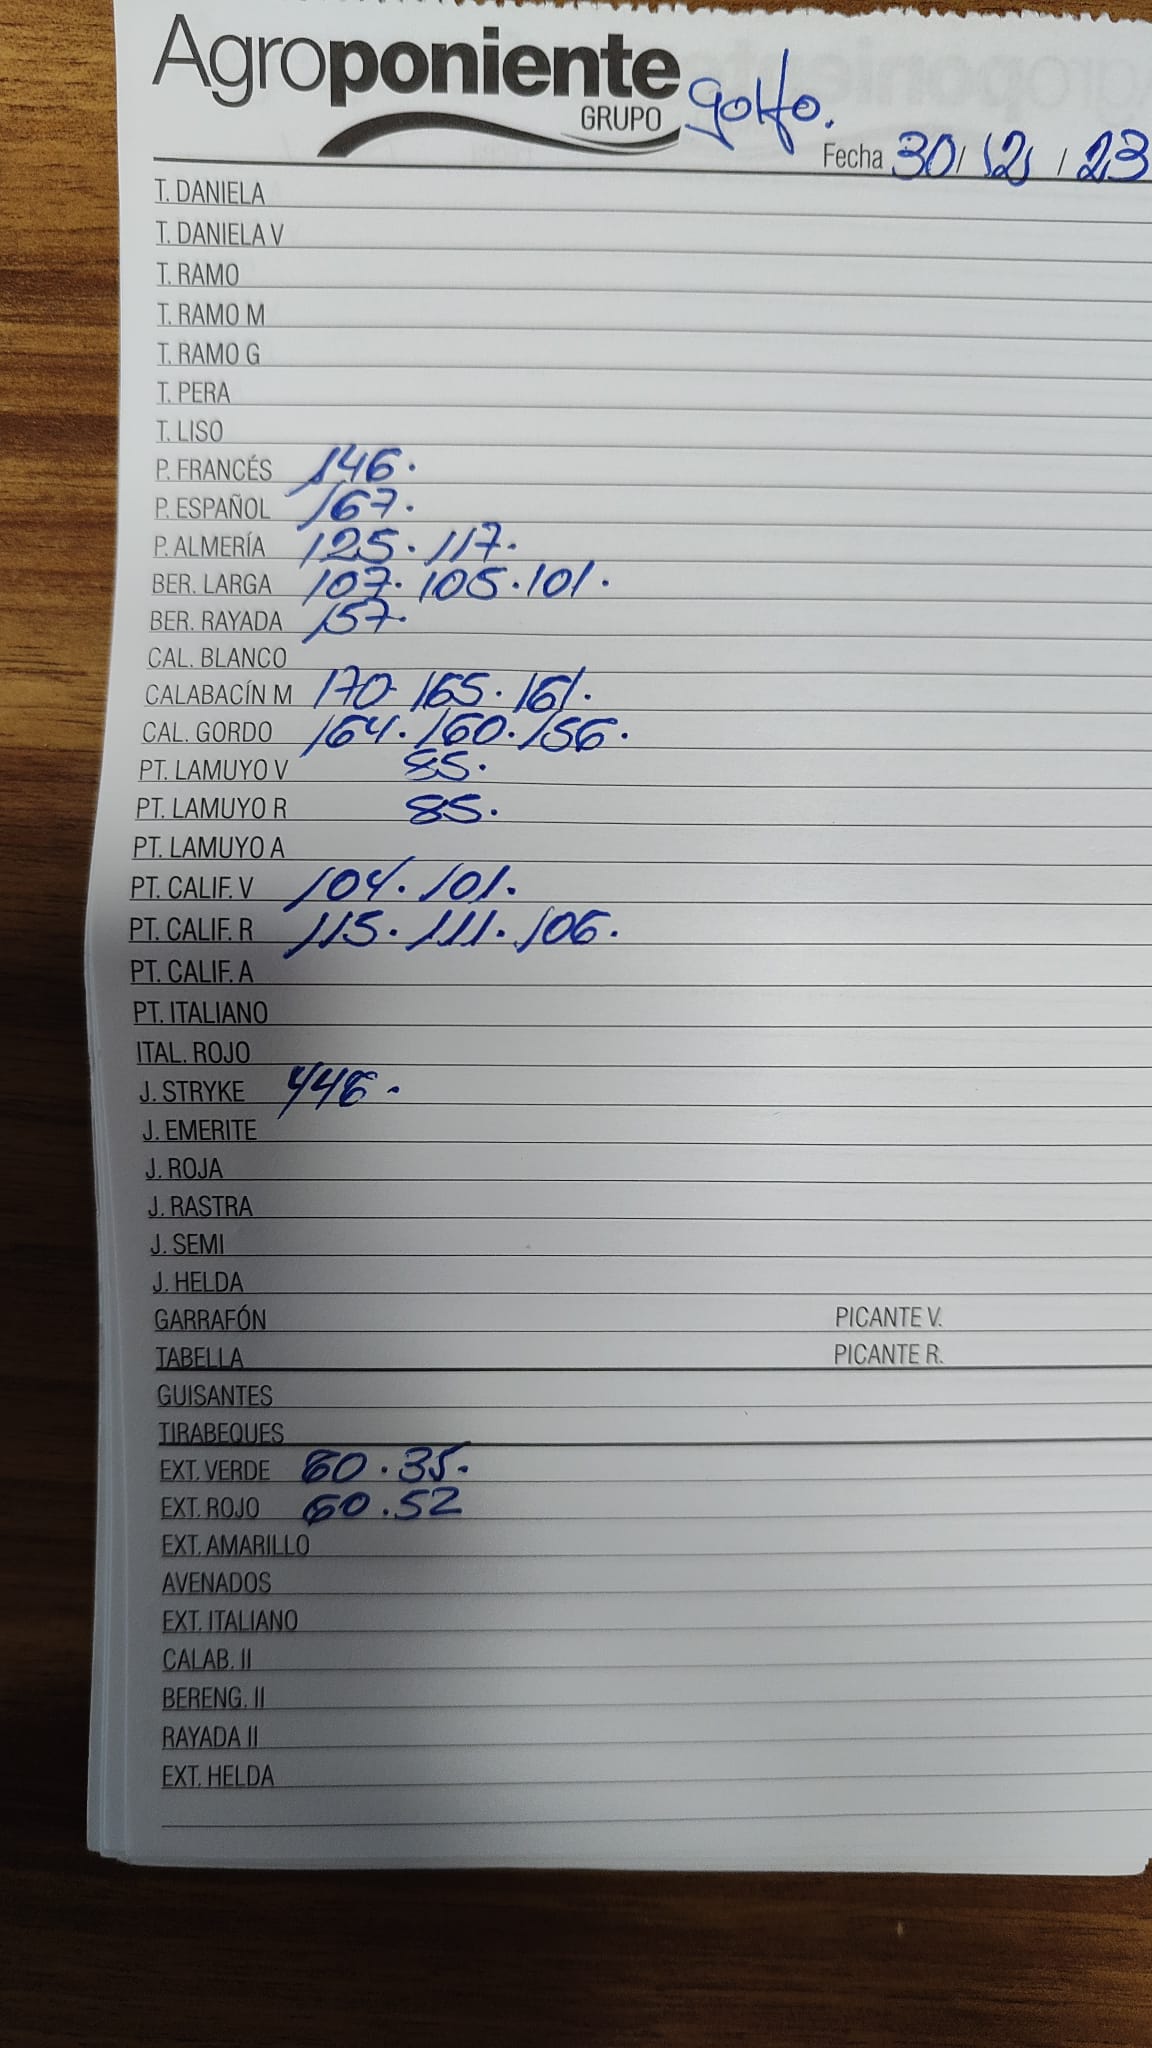 Agroponiente
GRUPO
golfo.
Fecha 30/12/23
T. DANIELA
T. DANIELA V
T. RAMO
T. RAMO M
T. RAMO G
T. PERA
T. LISO
P. FRANCÉS 146.
P. ESPAÑOL 167.
P. ALMERÍA 125. 117.
BER. LARGA 107. 105. 101.
BER. RAYADA 157.
CAL. BLANCO
CALABACÍN M 170 165. 161.
CAL. GORDO 164. 160. 156.
PT. LAMUYO V 85.
PT. LAMUYO R 85.
PT. LAMUYO A
PT. CALIF. V 104. 101.
PT. CALIF. R 115. 111. 106.
PT. CALIF. A
PT. ITALIANO
ITAL. ROJO
J. STRYKE 446.
J. EMERITE
J. ROJA
J. RASTRA
J. SEMI
J. HELDA
GARRAFÓN PICANTE V.
TABELLA PICANTE R.
GUISANTES
TIRABEQUES
EXT. VERDE 60. 35.
EXT. ROJO 60. 52
EXT. AMARILLO
AVENADOS
EXT. ITALIANO
CALAB. II
BERENG. II
RAYADA II
EXT. HELDA